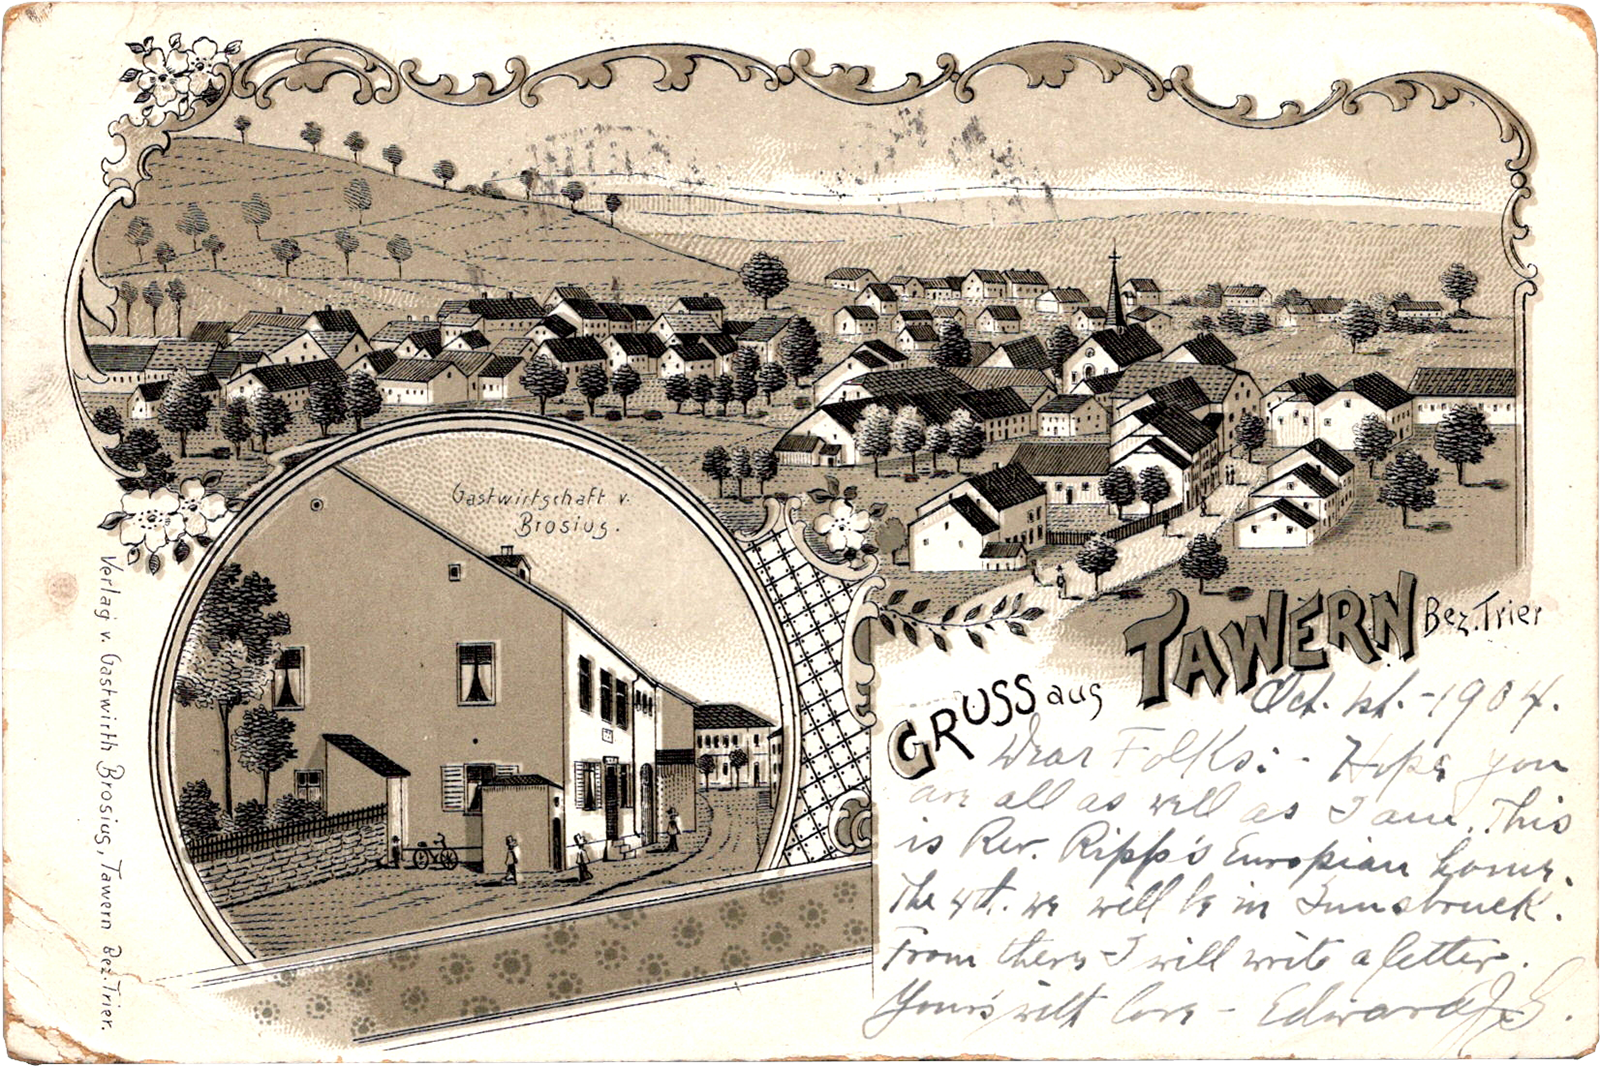 Gastwirtschaft v.
Brosius.
Verlag v. Gastwirth Brosius, Tawern Bez. Trier.
GRUSS aus TAWERN Bez. Trier
Oct. 1st. - 1904.
Dear Folks: - Hope you
are all as well as I am. This
is Rev. Ripp's Europian home.
The 4th. we will be in Innsbruck.
From there I will write a letter.
Yours with love - Edward J. S.